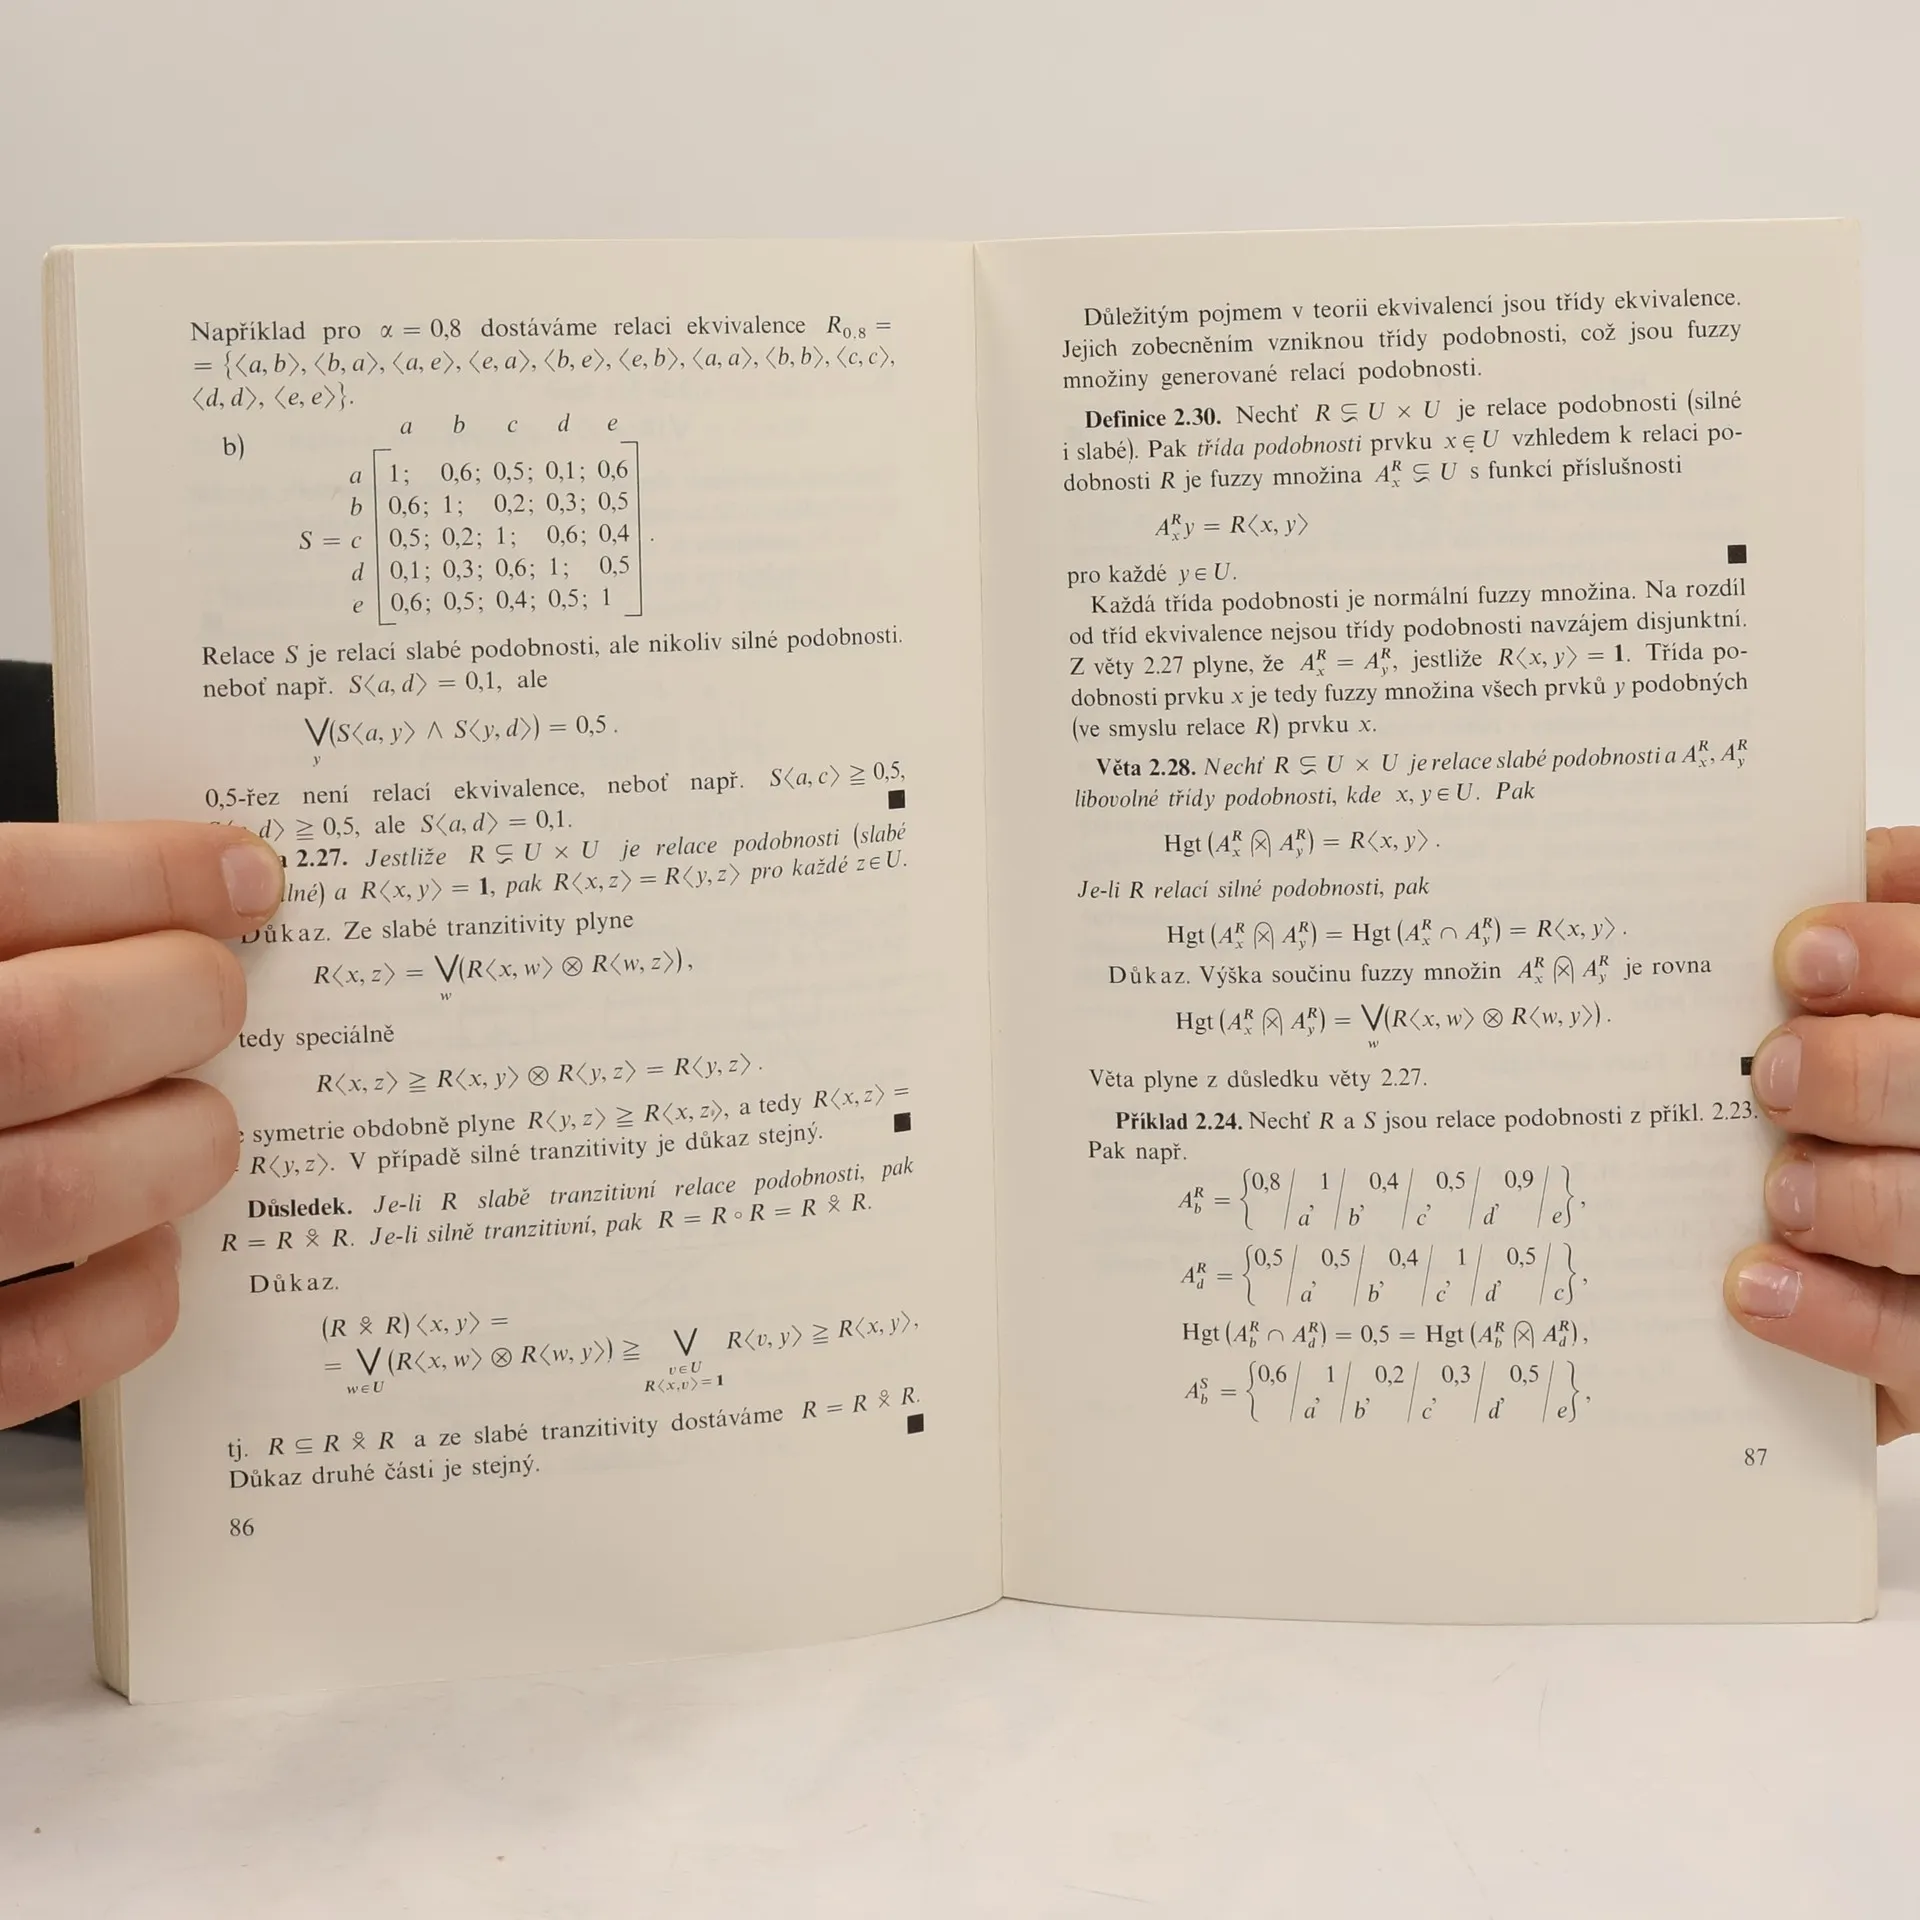 Například pro α = 0,8 dostáváme relaci ekvivalence R₀,₈ =
= {⟨a, b⟩, ⟨b, a⟩, ⟨a, e⟩, ⟨e, a⟩, ⟨b, e⟩, ⟨e, b⟩, ⟨a, a⟩, ⟨b, b⟩, ⟨c, c⟩,
⟨d, d⟩, ⟨e, e⟩}.
a b c d e
b)
a 1; 0,6; 0,5; 0,1; 0,6
b 0,6; 1; 0,2; 0,3; 0,5
S = c 0,5; 0,2; 1; 0,6; 0,4 .
d 0,1; 0,3; 0,6; 1; 0,5
e 0,6; 0,5; 0,4; 0,5; 1
Relace S je relací slabé podobnosti, ale nikoliv silné podobnosti.
neboť např. S⟨a, d⟩ = 0,1, ale
⋁(S⟨a, y⟩ ∧ S⟨y, d⟩) = 0,5 .
y
0,5-řez není relací ekvivalence, neboť např. S⟨a, c⟩ ≧ 0,5,
d⟩ ≧ 0,5, ale S⟨a, d⟩ = 0,1. ■
2.27. Jestliže R ⊊ U × U je relace podobnosti (slabé
lné) a R⟨x, y⟩ = 1, pak R⟨x, z⟩ = R⟨y, z⟩ pro každé z ∈ U.
Důkaz. Ze slabé tranzitivity plyne
R⟨x, z⟩ = ⋁(R⟨x, w⟩ ⊗ R⟨w, z⟩),
w
tedy speciálně
R⟨x, z⟩ ≧ R⟨x, y⟩ ⊗ R⟨y, z⟩ = R⟨y, z⟩ .
symetrie obdobně plyne R⟨y, z⟩ ≧ R⟨x, z⟩, a tedy R⟨x, z⟩ =
R⟨y, z⟩. V případě silné tranzitivity je důkaz stejný. ■
Důsledek. Je-li R slabě tranzitivní relace podobnosti, pak
R = R ⨰ R. Je-li silně tranzitivní, pak R = R ∘ R = R ⨰ R.
Důkaz.
(R ⨰ R)⟨x, y⟩ =
= ⋁ (R⟨x, w⟩ ⊗ R⟨w, y⟩) ≧ ⋁ R⟨v, y⟩ ≧ R⟨x, y⟩,
w∈U v∈U
R⟨x,v⟩=1
tj. R ⊆ R ⨰ R a ze slabé tranzitivity dostáváme R = R ⨰ R.
Důkaz druhé části je stejný. ■
86
Důležitým pojmem v teorii ekvivalencí jsou třídy ekvivalence.
Jejich zobecněním vzniknou třídy podobnosti, což jsou fuzzy
množiny generované relací podobnosti.
Definice 2.30. Nechť R ⊊ U × U je relace podobnosti (silné
i slabé). Pak třída podobnosti prvku x ∈ U vzhledem k relaci po-
dobnosti R je fuzzy množina Aₓᴿ ⊊ U s funkcí příslušnosti
Aₓᴿy = R⟨x, y⟩
pro každé y ∈ U. ■
Každá třída podobnosti je normální fuzzy množina. Na rozdíl
od tříd ekvivalence nejsou třídy podobnosti navzájem disjunktní.
Z věty 2.27 plyne, že A_x^R = A_y^R, jestliže R⟨x, y⟩ = 1. Třída po-
dobnosti prvku x je tedy fuzzy množina všech prvků y podobných
(ve smyslu relace R) prvku x.
Věta 2.28. Nechť R ⊊ U × U je relace slabé podobnosti a A_x^R, A_y^R
libovolné třídy podobnosti, kde x, y ∈ U. Pak
Hgt (A_x^R ⨂ A_y^R) = R⟨x, y⟩ .
Je-li R relací silné podobnosti, pak
Hgt (A_x^R ⨂ A_y^R) = Hgt (A_x^R ∩ A_y^R) = R⟨x, y⟩ .
Důkaz. Výška součinu fuzzy množin A_x^R ⨂ A_y^R je rovna
Hgt (A_x^R ⨂ A_y^R) = ⋁(R⟨x, w⟩ ⊗ R⟨w, y⟩) .
w
Věta plyne z důsledku věty 2.27. ■
Příklad 2.24. Nechť R a S jsou relace podobnosti z příkl. 2.23.
Pak např.
A_b^R = {0,8/a, 1/b, 0,4/c, 0,5/d, 0,9/e},
A_d^R = {0,5/a, 0,5/b, 0,4/c, 1/d, 0,5/c},
Hgt (A_b^R ∩ A_d^R) = 0,5 = Hgt (A_b^R ⨂ A_d^R),
A_b^S = {0,6/a, 1/b, 0,2/c, 0,3/d, 0,5/e},
87